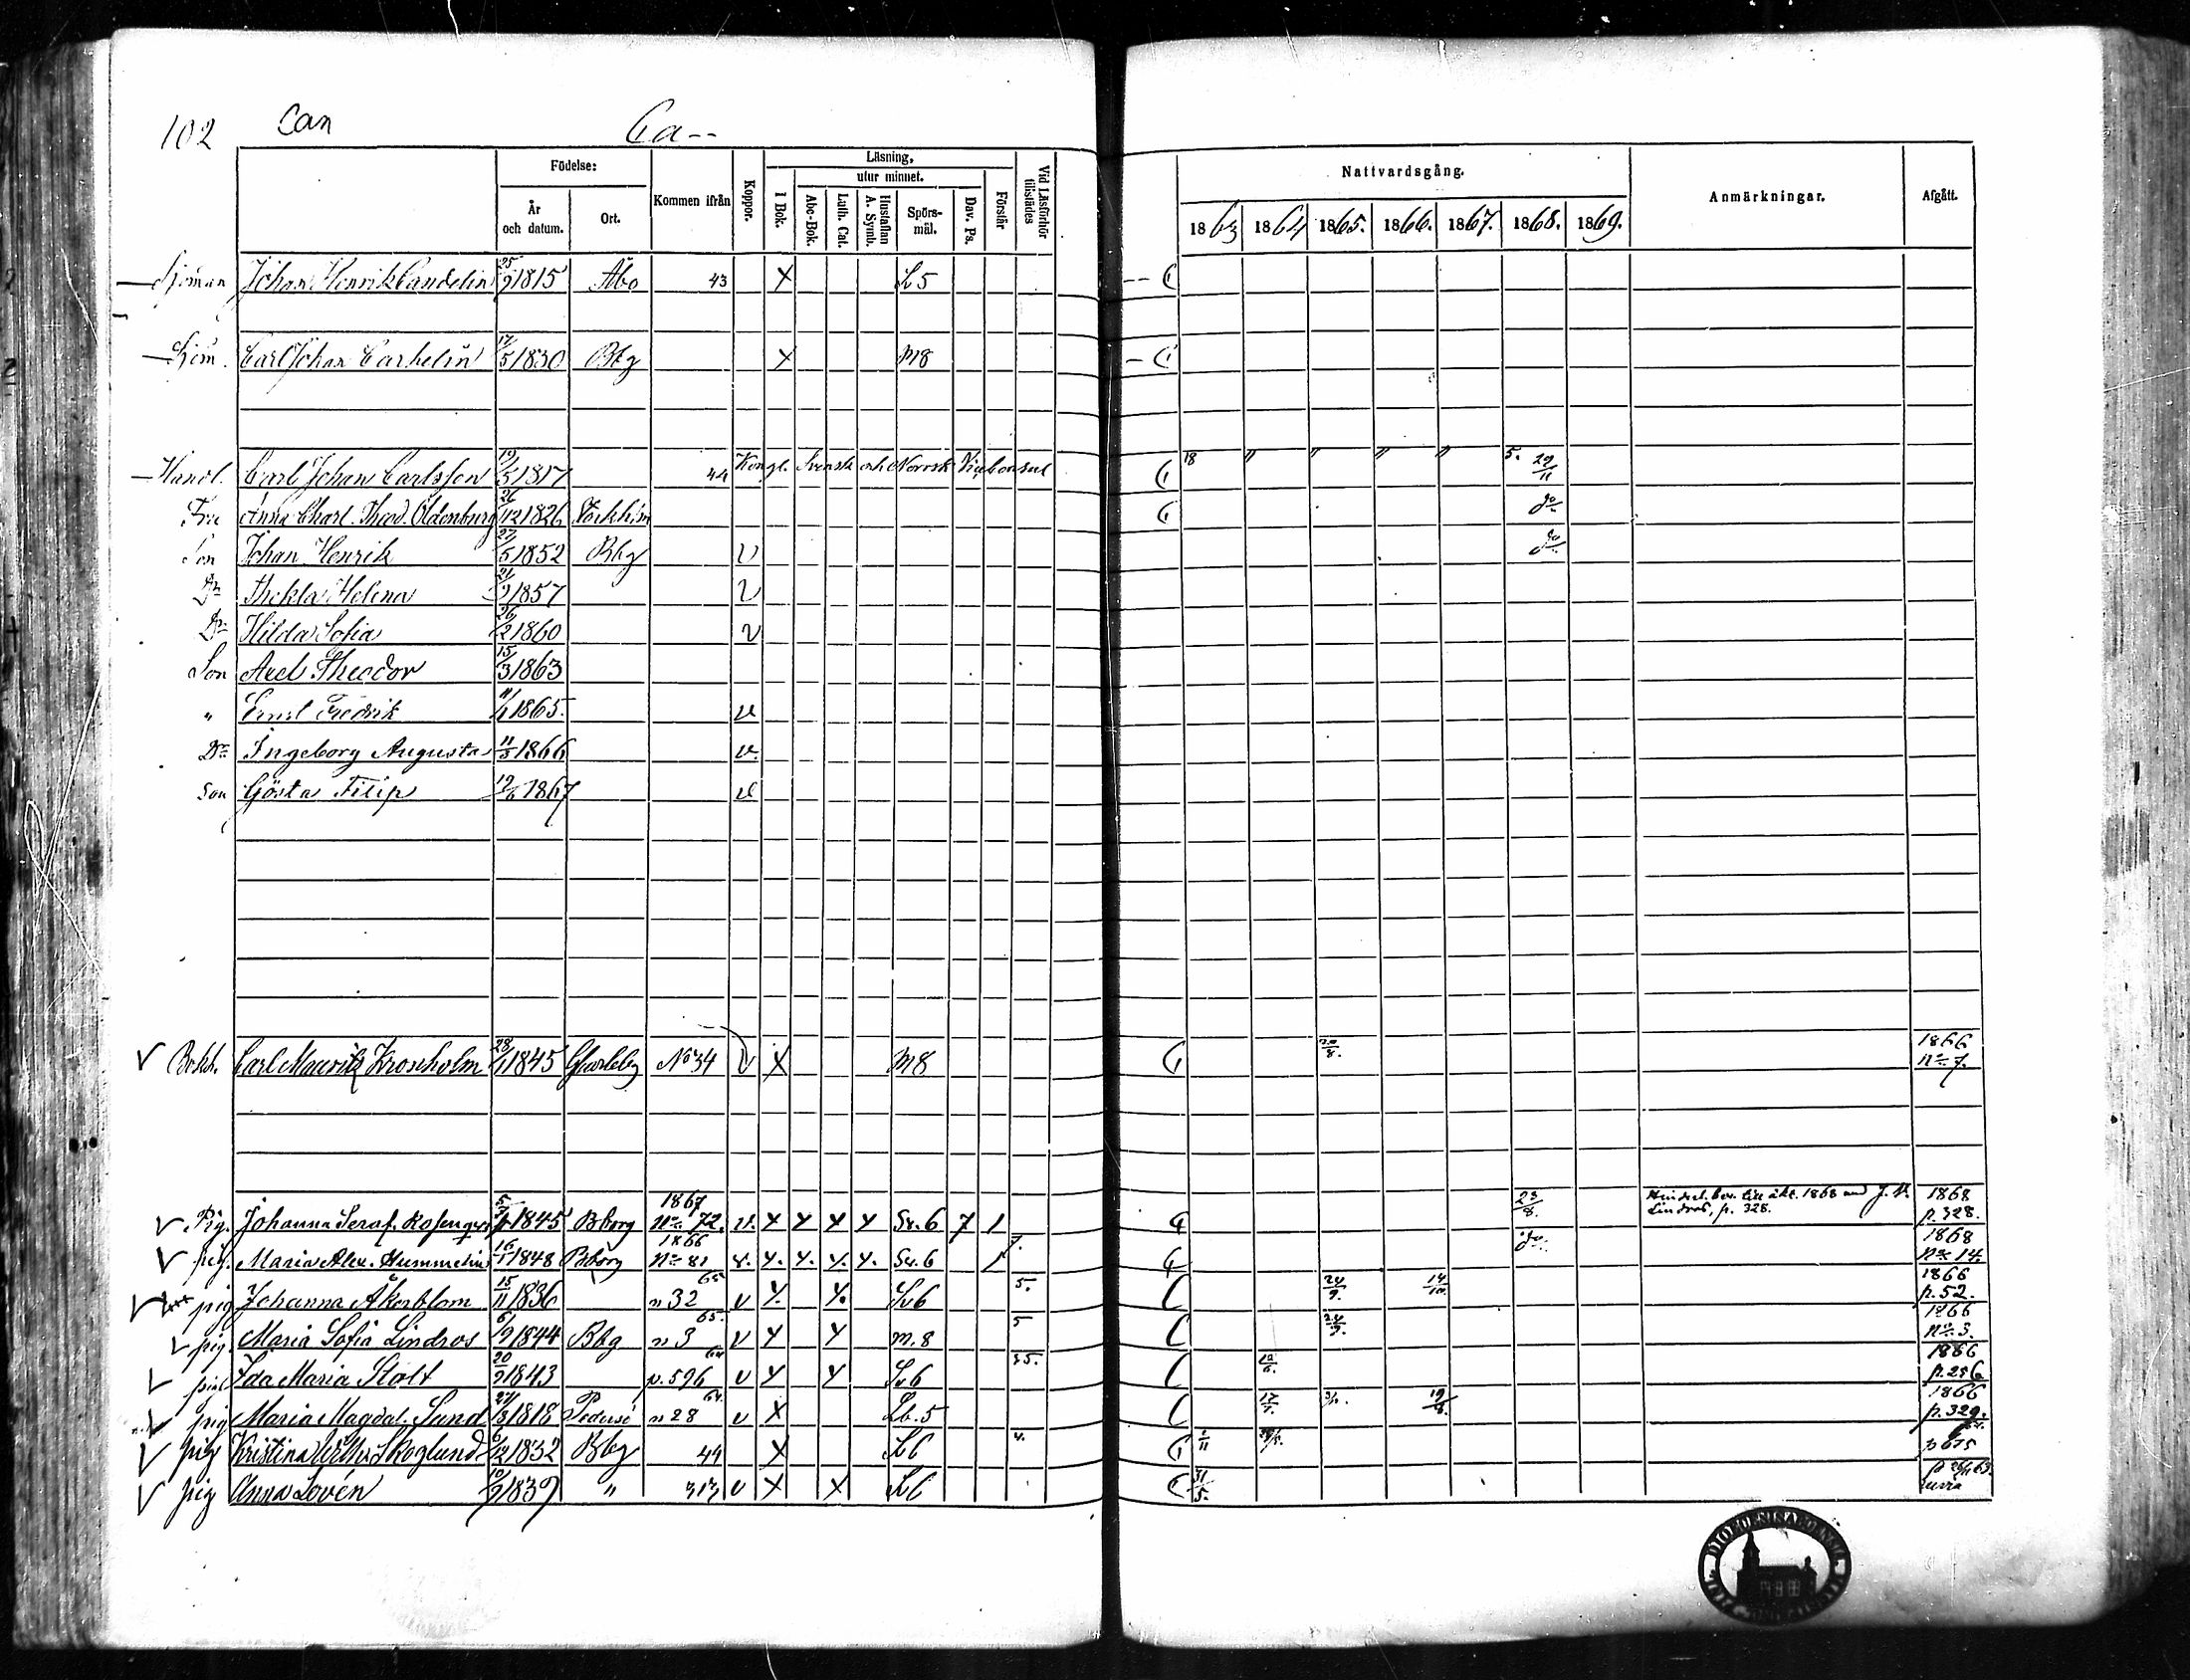 102 Can Ca--
Födelse: Kommen ifrån Koppor. Läsning, Vid Läsförhör tillstädes Nattvardsgång. Anmärkningar. Afgått.
År och datum. Ort. I Bok. utur minnet. Förstår
Abc-Bok. Luth. Cat. Hustaflan A. Symb. Spörsmål. Dav. Ps. 1863 1864 1865. 1866. 1867. 1868. 1869.
Sjöman Johan Henrik Candelin 25/9 1815 Åbo 43 X Sv 5
Sjöm. Carl Johan Carhelin 17/5 1830 Bbg X m8
Handl. Carl Johan Carlsson 19/5 1817 44 Kongl. Svensk och Norrsk Vicekonsul 18 " " " " 5. 29/11
Fru Anna Charl. Theod. Oldenburg 26/12 1826 Stockholm do
Son Johan Henrik 27/5 1852 Bbg v do
Dr Thekla Helena 21/9 1857 v
Dr Hilda Sofia 26/2 1860 v
Son Axel Theodor 15/3 1863
" Ernst Fredrik 11/1 1865. v
Dr Ingeborg Augusta 11/3 1866 v.
Son Gösta Filip 19/6 1867 v
Bokh. Carl Mauritz Kroxholm 28/1 1845 No 34 v X m8 20/8. 1866 No 7.
Pig. Johanna Seraf. 1845 Bborg 1867 No 72. v. X X X X Sv. 6 7 1 23/8. till äkt. 1868 med J. Lindros, p. 328. 1868 p. 328.
pig. Maria Alex. Hummelin 16/1 1848 Bborg 1866 No 81 v. X. X. X. X. Sv. 6 1 7. do 1868 No 14.
pig Johanna Åkerblom 15/11 1836 n 32 65 v X. X. Sv 6 5. 24/9. 14/10. 1866 p. 52.
pig. Maria Sofia Lindros 6/9 1844 Bbg n 3 65. v X X m. 8 5 24/9. 1866 No 3.
pig. Ida Maria Stolt 20/9 1843 p. 596 64 v X X Sv 6 1866 p. 256
pig Maria Magdal. Sund 27/3 1818 Pedersö n 28 64. v X Sb. 5 17/7. 19/8. 1866 p. 329.
pig Kristina Skoglund 6/12 1832 Bbg 44 X Sv 6 4. 1/11 p 675
pig Anna Lovén 10/9 1839 " 313 v X X Sv 6 31/5.